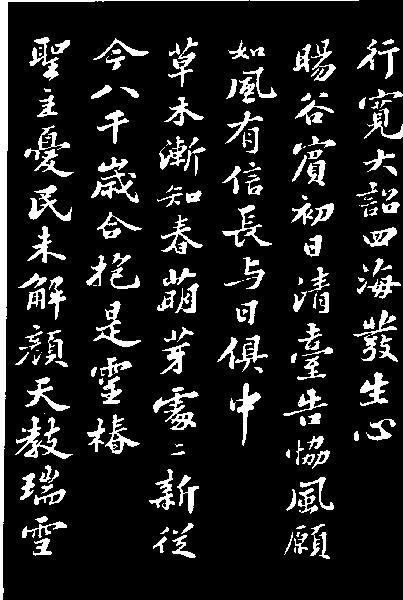 行寬大詔四海發生心
暘谷賓初日清臺告協風願
如風有信長與日俱中
草木漸知春萌芽處〻新從
今八千歲合抱是靈椿
聖主憂民未解顏天教瑞雪